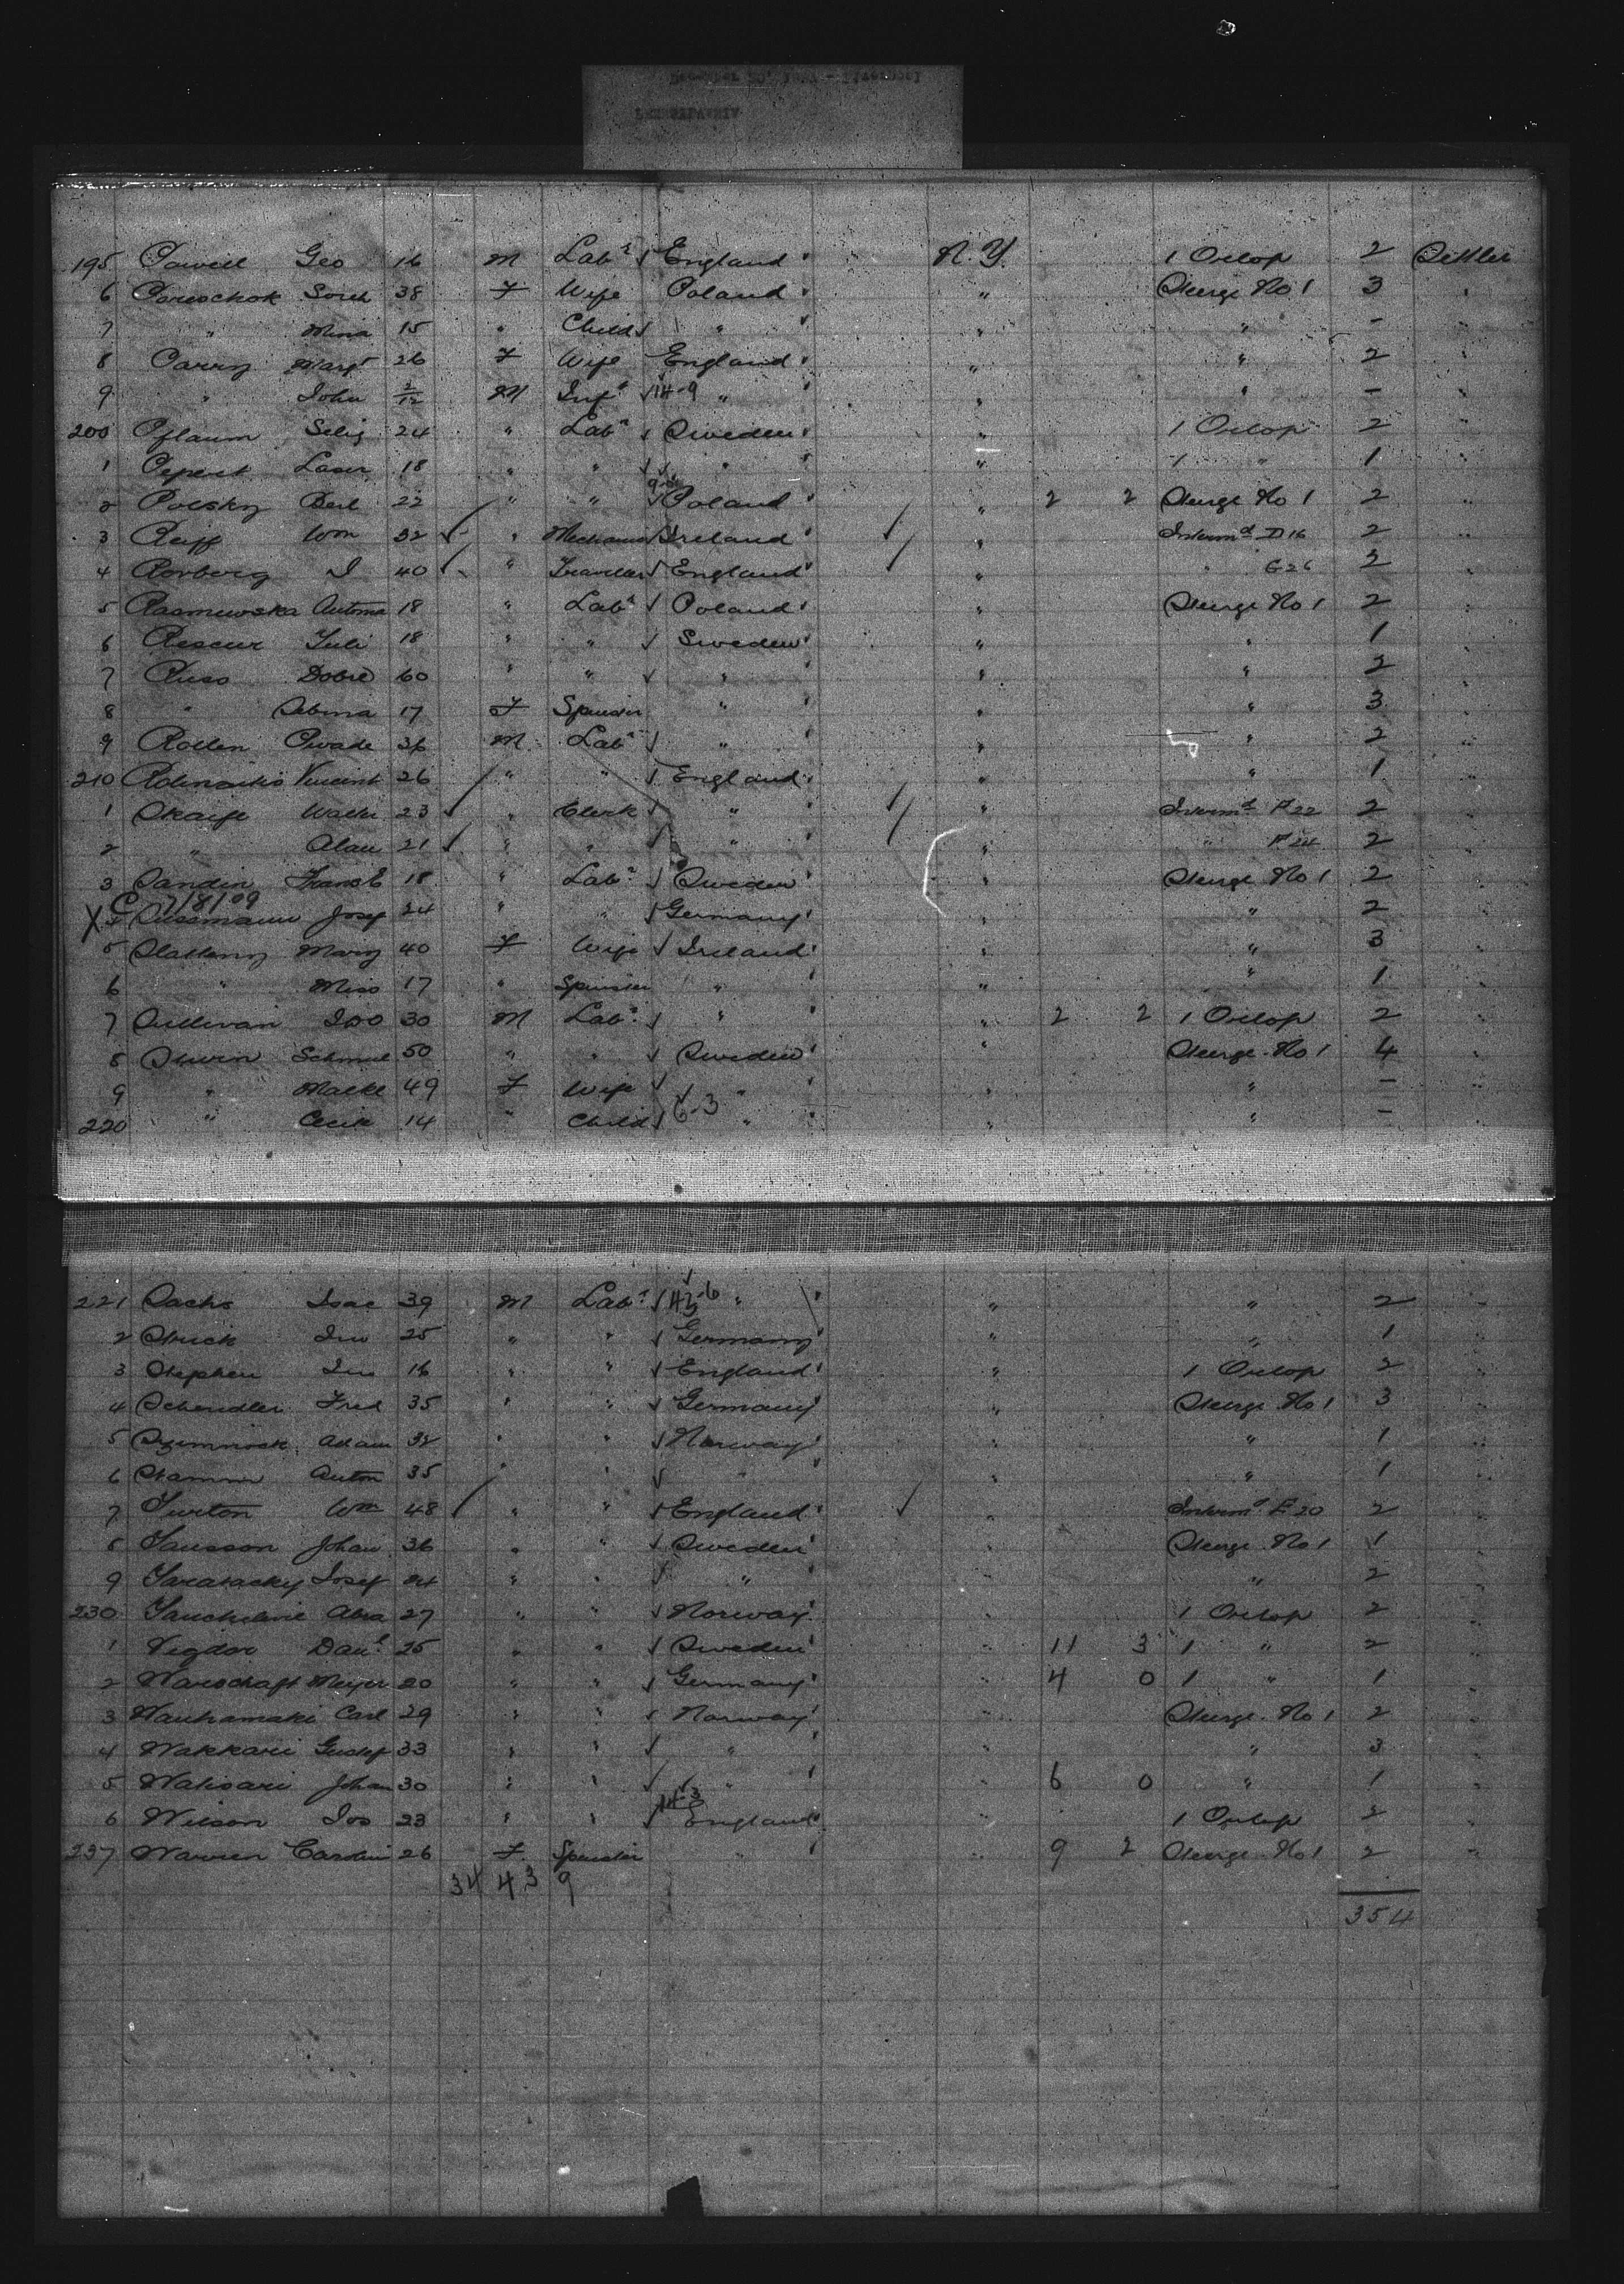 195 Powell Geo 16 M Labr England N.Y. 1 Orlop 2 Settler
6 Sorch 38 F Wife Poland " Steerge No 1 3 "
7 " Mina 15 " Child " " " - "
8 Parry Margt 26 F Wife England " " 2 "
9 " John 2/12 M Inft 14-9 " " " - "
200 Pflaum Selig 24 " Labr Sweden " 1 Orlop 2 "
1 Peperk Laser 18 " " " " 1 " 1 "
2 Polsky Berl 22 " " Poland " 2 2 Steerge No 1 2 "
3 Reiff Wm 32 " Mechanic Ireland " Intermd D16 2 "
4 Rorberg I 40 " Traveller England " " G26 2 "
5 18 " Labr Poland " Steerge No 1 2 "
6 Juli 18 " " Sweden " " 1 "
7 Russ Dobre 60 " " " " " 2 "
8 " Sabina 17 F Spinster " " " 3 "
9 Rollen 36 M Labr " " " 2 "
210 Vincent 26 " " England " " 1 "
1 Skaife Walter 23 " Clerk " " Intermd F22 2 "
2 " Alan 21 " " " " " F24 2 "
3 Sandin Frans E 18 " Labr Sweden " Steerge No 1 2 "
C 7/8/09
X 4 Sussmann Josef 24 " " Germany " " 2 "
5 Slattery Mary 40 F Wife Ireland " " 3 "
6 " Miss 17 " Spinster " " " 1 "
7 Sullivan 30 M Labr " " 2 2 1 Orlop 2 "
8 Schmul 50 " " Sweden " Steerge No 1 4 "
9 " Malke 49 F Wife " " " - "
220 " Cecile 14 " Child 6-3 " " " - "
221 Sachs Isac 39 M Labr 43-6 " " " 2 "
2 25 " " Germany " " 1 "
3 Stephen 16 " " England " 1 Orlop 2 "
4 Schendler Fred 35 " " Germany " Steerge No 1 3 "
5 Adam 32 " " Norway " " 1 "
6 Stamm Anton 35 " " " " " 1 "
7 Turton Wm 48 " " England " Intermd E20 2 "
8 Johan 36 " " Sweden " Steerge No 1 1 "
9 Josef 24 " " " " " 2 "
230 Abra 27 " " Norway " 1 Orlop 2 "
1 Vigdor Danl 25 " " Sweden " 11 3 1 " 2 "
2 Warschaft Meyer 20 " " Germany " 4 0 1 " 1 "
3 Wauhamaki Carl 29 " " Norway " Steerge No 1 2 "
4 Wakkari Gustaf 33 " " " " " 3 "
5 Walisari Johan 30 " " " " 6 0 " 1 "
6 Wilson Jos 23 " " 14-3 England " 1 Orlop 2 "
237 Warren Carolin 26 F Spinster " " 9 2 Steerge No 1 2 "
34 43 9
354